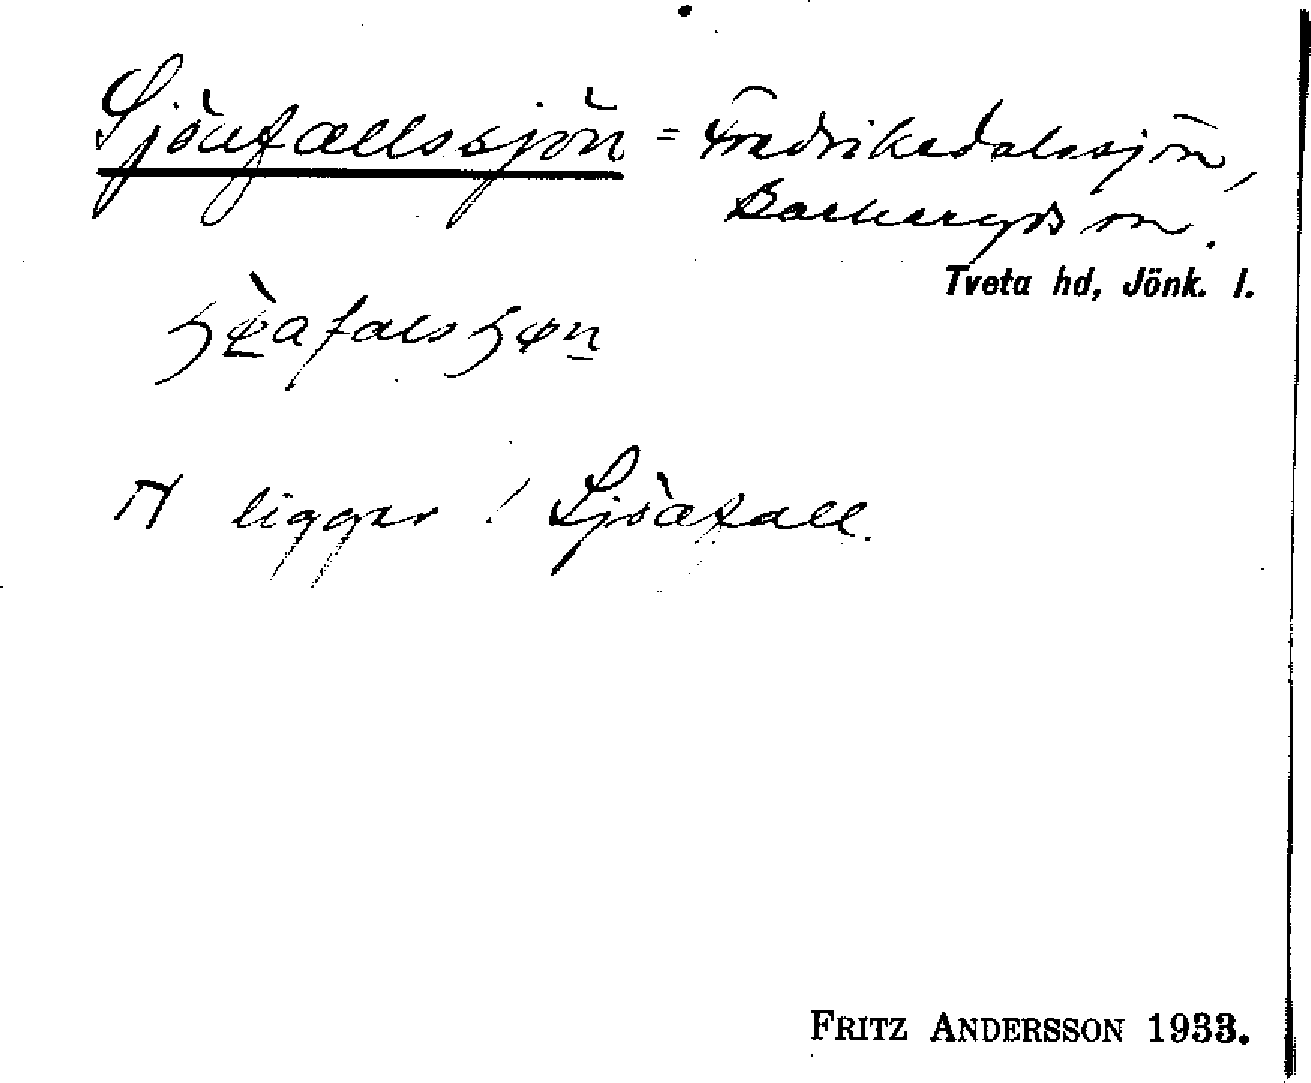 Sjöafallssjön = Fredriksdalssjön,
Barkeryds sn.
Tveta hd, Jönk. l.
ligger i Sjöafall.
FRITZ ANDERSSON 1933.